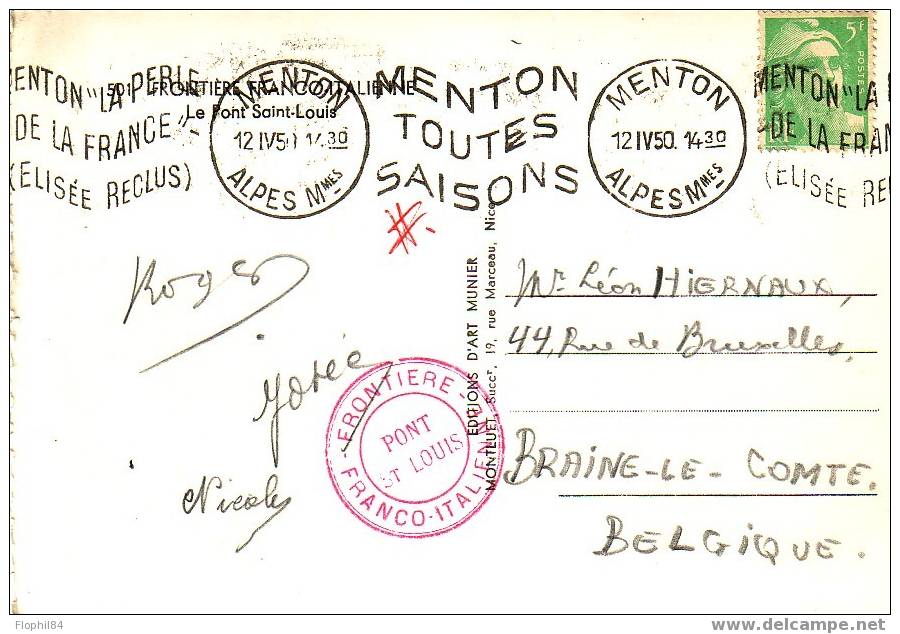 MENTON "LA PERLE
DE LA FRANCE"
(ELISÉE RECLUS)
501 FRONTIÈRE FRANCO-ITALIENNE
Le Pont Saint-Louis
MENTON
12 IV 50 14 30
ALPES Mmes
MENTON
TOUTES
SAISONS
MENTON
12 IV 50. 14 30
ALPES Mmes
5F
POSTES
MENTON "LA
DE LA FRANC
(ELISÉE REC
Roger
Josée
Nicole
FRONTIERE
FRANCO-ITALIEN
PONT
ST LOUIS
EDITIONS D'ART MUNIER
MONTLUET, Succr, 19, rue Marceau, Nice
Mr Léon HIERNAUX,
44, Rue de Bruxelles,
BRAINE-LE-COMTE.
BELGIQUE.
Flophil84
www.delcampe.net